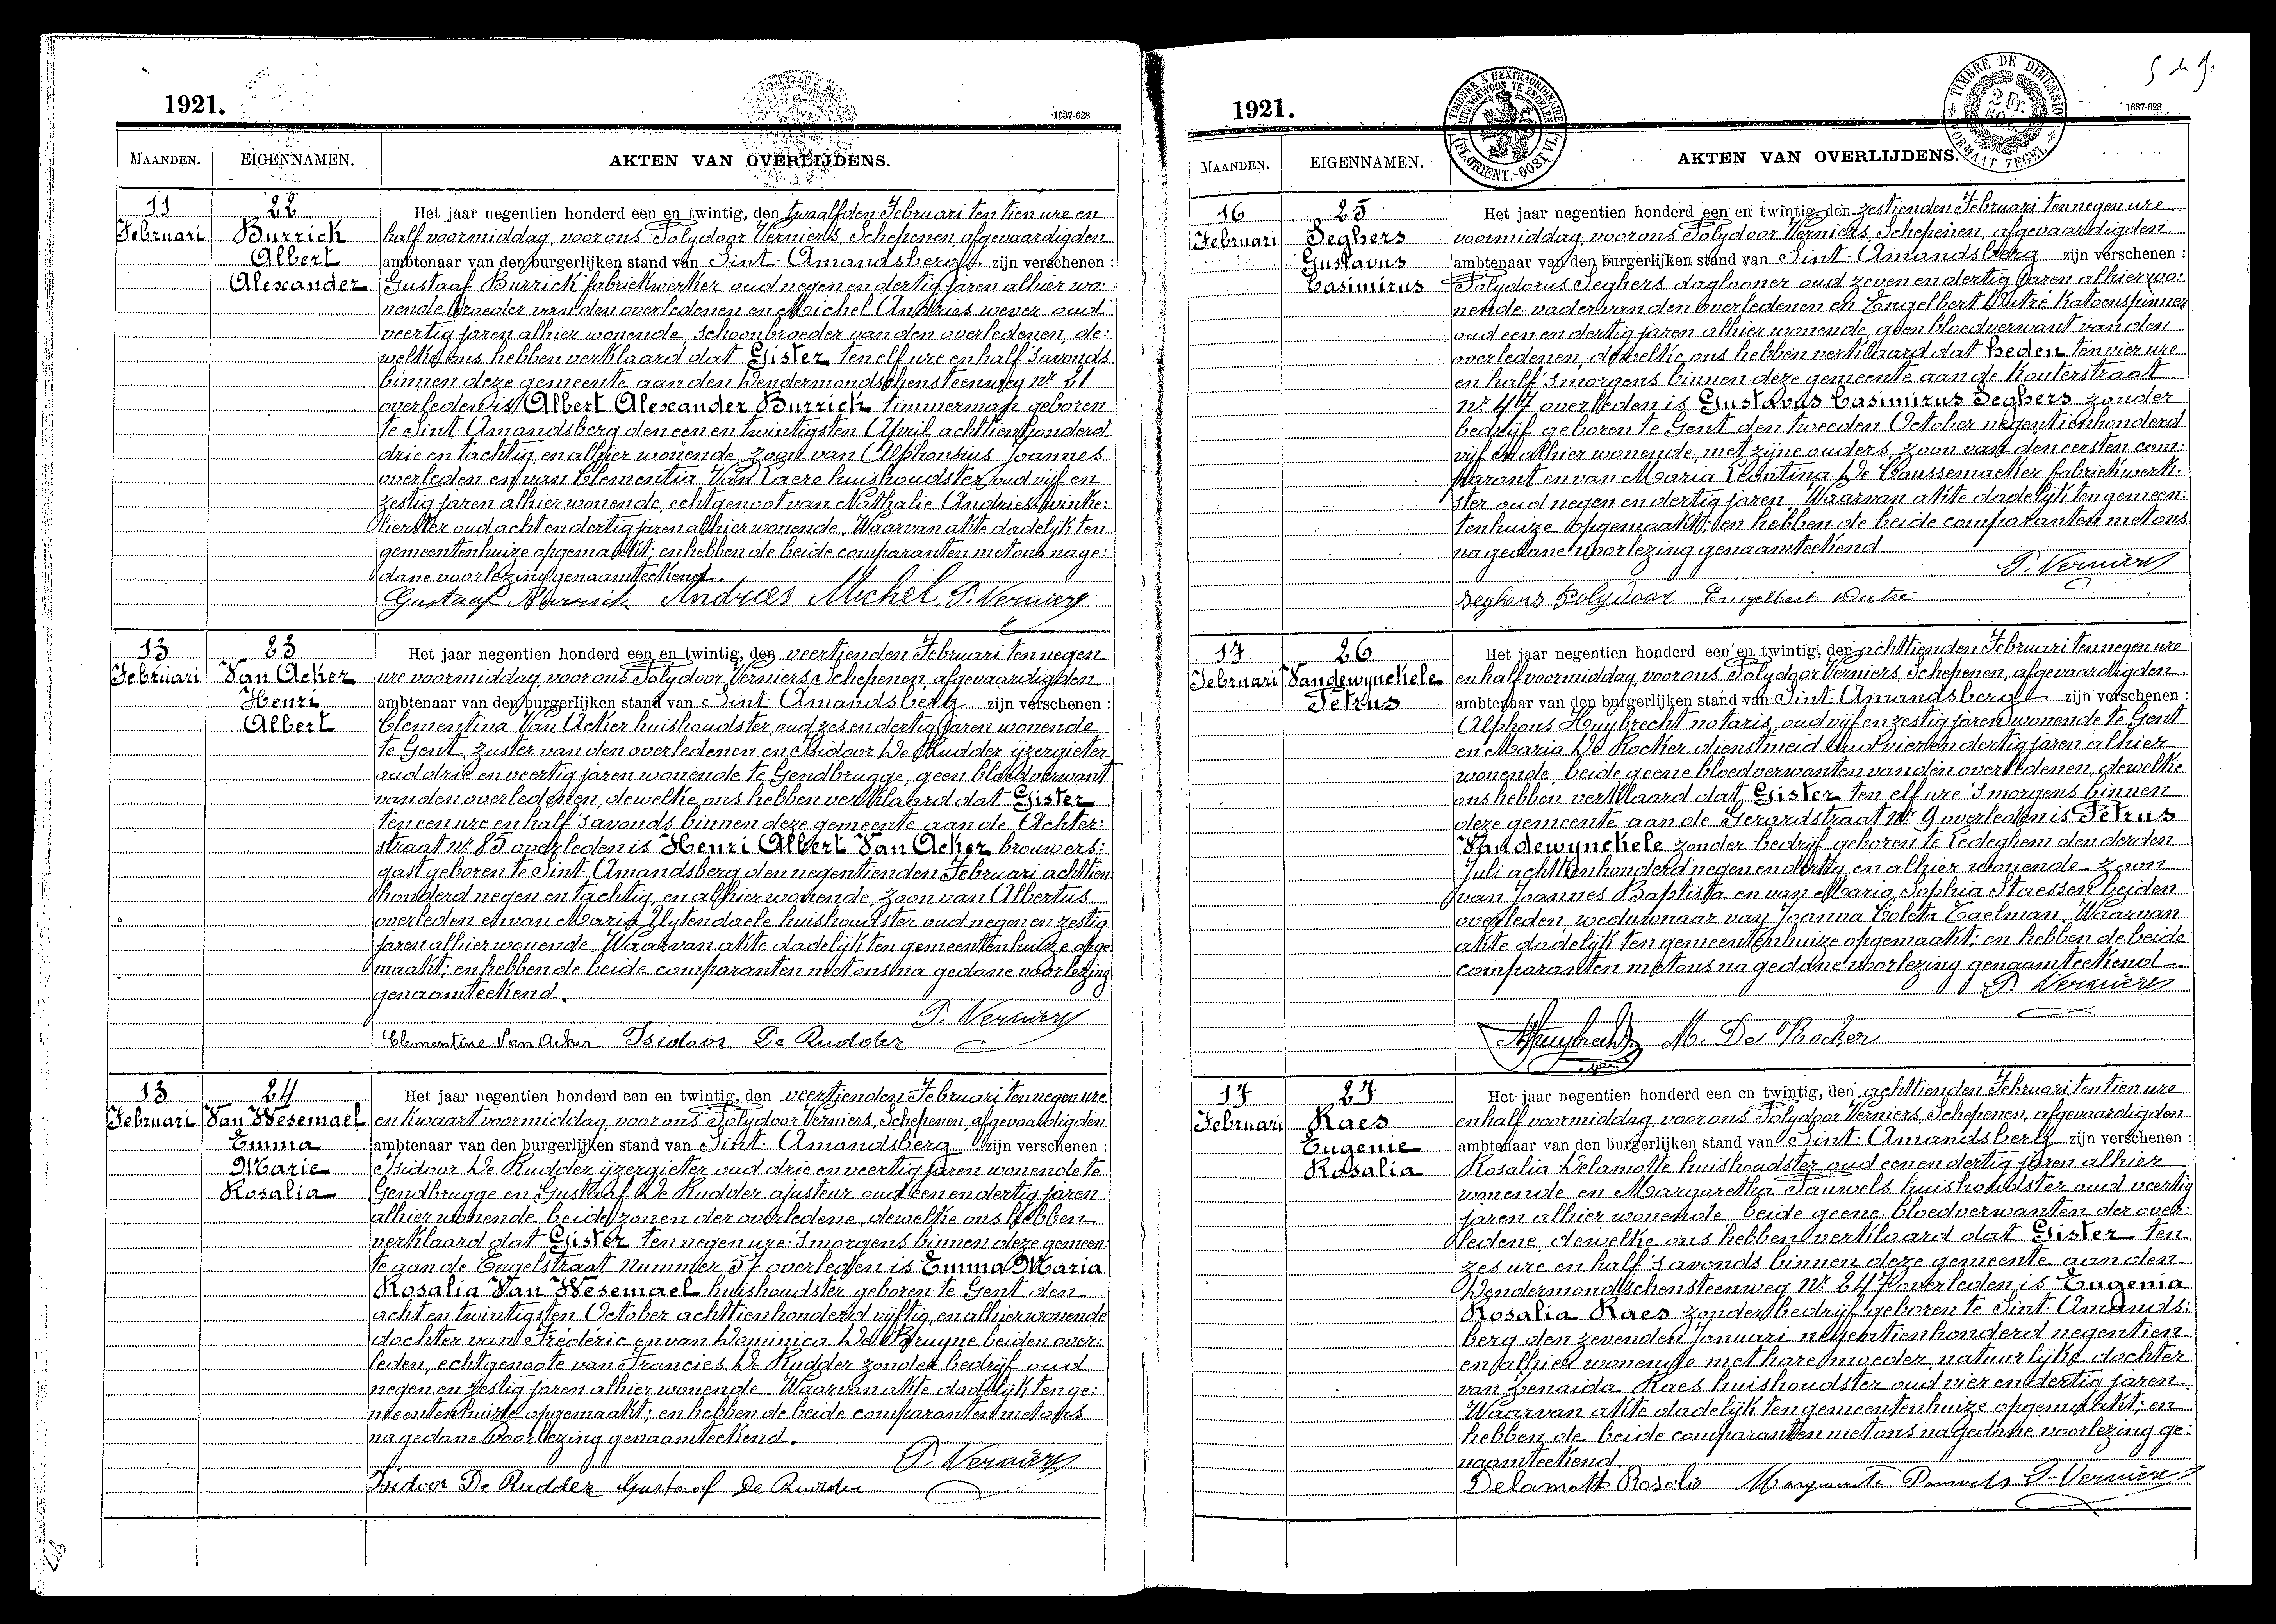 1921.
1637-628
MAANDEN.
EIGENNAMEN.
AKTEN VAN OVERLIJDENS.
11
Februari
22
Burrick
Albert
Alexander
Het jaar negentien honderd een en twintig, den twaalfden Februari ten tien ure en
half voormiddag, voor ons Polydoor Verniers, Schepenen, afgevaardigden
ambtenaar van den burgerlijken stand van Sint-Amandsberg zijn verschenen :
Gustaaf Burrick fabriekwerker oud negen en dertig jaren alhier wo:
nende broeder van den overledenen en Michel Andries wever oud
veertig jaren alhier wonende, schoonbroeder van den overledenen, de:
welke ons hebben verklaard dat Gister ten elf ure en half 's avonds
binnen deze gemeente aan den Dendermondschensteenweg nr 21
overleden is Albert Alexander Burrick timmerman geboren
te Sint-Amandsberg den een en twintigsten April achttien honderd
drie en tachtig, en alhier wonende, zoon van Alphonsius Joannes
overleden en van Clementia Van Laere huishoudster oud vijf en
zestig jaren alhier wonende, echtgenoot van Nathalie Andries winke:
lierster oud acht en dertig jaren alhier wonende. Waarvan akte dadelijk ten
gemeentenhuize opgemaakt; en hebben de beide comparanten met ons na ge:
dane voorlezing genaamteekend.
Gustaaf Burrick Andries Michel. P. Verniers
13
Februari
23
Van Acker
Henri
Albert
Het jaar negentien honderd een en twintig, den veertienden Februari ten negen
ure voormiddag, voor ons Polydoor Verniers, Schepenen, afgevaardigden
ambtenaar van den burgerlijken stand van Sint-Amandsberg zijn verschenen :
Clementina Van Acker huishoudster oud zes en dertig jaren wonende
te Gent, zuster van den overledenen en Isidoor De Rudder ijzergieter
oud drie en veertig jaren wonende te Gendbrugge, geen bloedverwant
van den overledenen, dewelke ons hebben verklaard dat Gister
ten een ure en half 's avonds binnen deze gemeente aan de Achter:
straat nr 85 overleden is Henri Albert Van Acker brouwers:
gast geboren te Sint-Amandsberg den negentienden Februari achttien
honderd negen en tachtig, en alhier wonende, zoon van Albertus
overleden en van Maria Uytendaele huishoudster oud negen en zestig
jaren alhier wonende. Waarvan akte dadelijk ten gemeentenhuize opge
maakt; en hebben de beide comparanten met ons na gedane voorlezing
genaamteekend.
P. Verniers
Clementine Van Acker Isidoor De Rudder
13
Februari
24
Van Wesemael
Emma
Marie
Rosalia
Het jaar negentien honderd een en twintig, den veertienden Februari ten negen ure
en kwaart voormiddag, voor ons Polydoor Verniers, Schepenen, afgevaardigden
ambtenaar van den burgerlijken stand van Sint-Amandsberg zijn verschenen :
Isidoor De Rudder ijzergieter oud drie en veertig jaren wonende te
Gendbrugge en Gustaaf De Rudder ajusteur oud een en dertig jaren
alhier wonende beide zonen der overledene, dewelke ons hebben
verklaard dat Gister ten negen ure 's morgens binnen deze gemeen:
te aan de Engelstraat nummer 57 overleden is Emma Maria
Rosalia Van Wesemael huishoudster geboren te Gent den
acht en twintigsten October achttienhonderd vijftig, en alhier wonende
dochter van Frédéric en van Dominica De Bruyne beiden over:
leden, echtgenoote van Francies De Rudder zonder bedrijf oud
negen en zestig jaren alhier wonende. Waarvan akte dadelijk ten ge:
meentenhuize opgemaakt; en hebben de beide comparanten met ons
na gedane voorlezing genaamteekend.
P. Verniers
Isidoor De Rudder Gustaaf De Rudder
1921.
TIMBRE DE DIMENSION
2 Fr.
FORMAAT ZEGEL
1637-628
MAANDEN.
EIGENNAMEN.
AKTEN VAN OVERLIJDENS.
16
Februari
25
Seghers
Gustavus
Casimirus
Het jaar negentien honderd een en twintig, den zestienden Februari ten negen ure
voormiddag, voor ons Polydoor Verniers, Schepenen, afgevaardigden
ambtenaar van den burgerlijken stand van Sint-Amandsberg zijn verschenen :
Polydorus Seghers daglooner oud zeven en dertig jaren alhier wo:
nende vader van den overledenen en Engelbert Dutré katoenspinner
oud een en dertig jaren alhier wonende, geen bloedverwant van den
overledenen, dewelke ons hebben verklaard dat heden ten vier ure
en half 's morgens binnen deze gemeente aan de Kouterstraat
nr 47 overleden is Gustavus Casimirus Seghers zonder
bedrijf geboren te Gent den tweeden October negentienhonderd
vijf en alhier wonende met zijne ouders, zoon van den eersten com:
parant en van Maria Leontina De Caussemacker fabriekwerk:
ster oud negen en dertig jaren. Waarvan akte dadelijk ten gemeen:
tenhuize opgemaakt; en hebben de beide comparanten met ons
na gedane voorlezing genaamteekend.
P. Verniers
Seghers Polydoor Engelbert Dutré
17
Februari
26
Vandewynckele
Petrus
Het jaar negentien honderd een en twintig, den achttienden Februari ten negen ure
en half voormiddag, voor ons Polydoor Verniers, Schepenen, afgevaardigden
ambtenaar van den burgerlijken stand van Sint-Amandsberg zijn verschenen :
Alphons Huybrecht notaris, oud vijf en zestig jaren wonende te Gent
en Maria De Kocker dienstmeid oud vier en dertig jaren alhier
wonende, beide geene bloedverwanten van den overledenen, dewelke
ons hebben verklaard dat Gister ten elf ure 's morgens binnen
deze gemeente aan de Gerardstraat nr 9 overleden is Petrus
Vandewynckele zonder bedrijf geboren te Ledeghem den derden
Juli achttienhonderd negen en dertig en alhier wonende zoon
van Joannes Baptista en van Maria Sophia Staessens beiden
overleden, weduwnaar van Joanna Coleta Taelman. Waarvan
akte dadelijk ten gemeentenhuize opgemaakt; en hebben de beide
comparanten met ons na gedane voorlezing genaamteekend.
P. Verniers
AHuybrecht M. De Kocker
17
Februari
27
Raes
Eugenie
Rosalia
Het jaar negentien honderd een en twintig, den achttienden Februari ten tien ure
en half voormiddag, voor ons Polydoor Verniers, Schepenen, afgevaardigden
ambtenaar van den burgerlijken stand van Sint-Amandsberg zijn verschenen :
Rosalia Delamotte huishoudster oud een en dertig jaren alhier
wonende en Margaretha Pauwels huishoudster oud veertig
jaren alhier wonende beide geene bloedverwanten der over:
ledene, dewelke ons hebben verklaard dat Gister ten
zes ure en half 's avonds binnen deze gemeente aan den
Dendermondschensteenweg Nr 247 overleden is Eugenia
Rosalia Raes zonder bedrijf geboren te Sint-Amands:
berg den zevenden Januari negentienhonderd negentien
en alhier wonende met hare moeder, natuurlijke dochter
van Zenaida Raes huishoudster oud vier en dertig jaren.
Waarvan akte dadelijk ten gemeentenhuize opgemaakt; en
hebben de beide comparanten met ons na gedane voorlezing ge:
naamteekend.
Delamott Rosalia Marguerite Pauwels P. Verniers